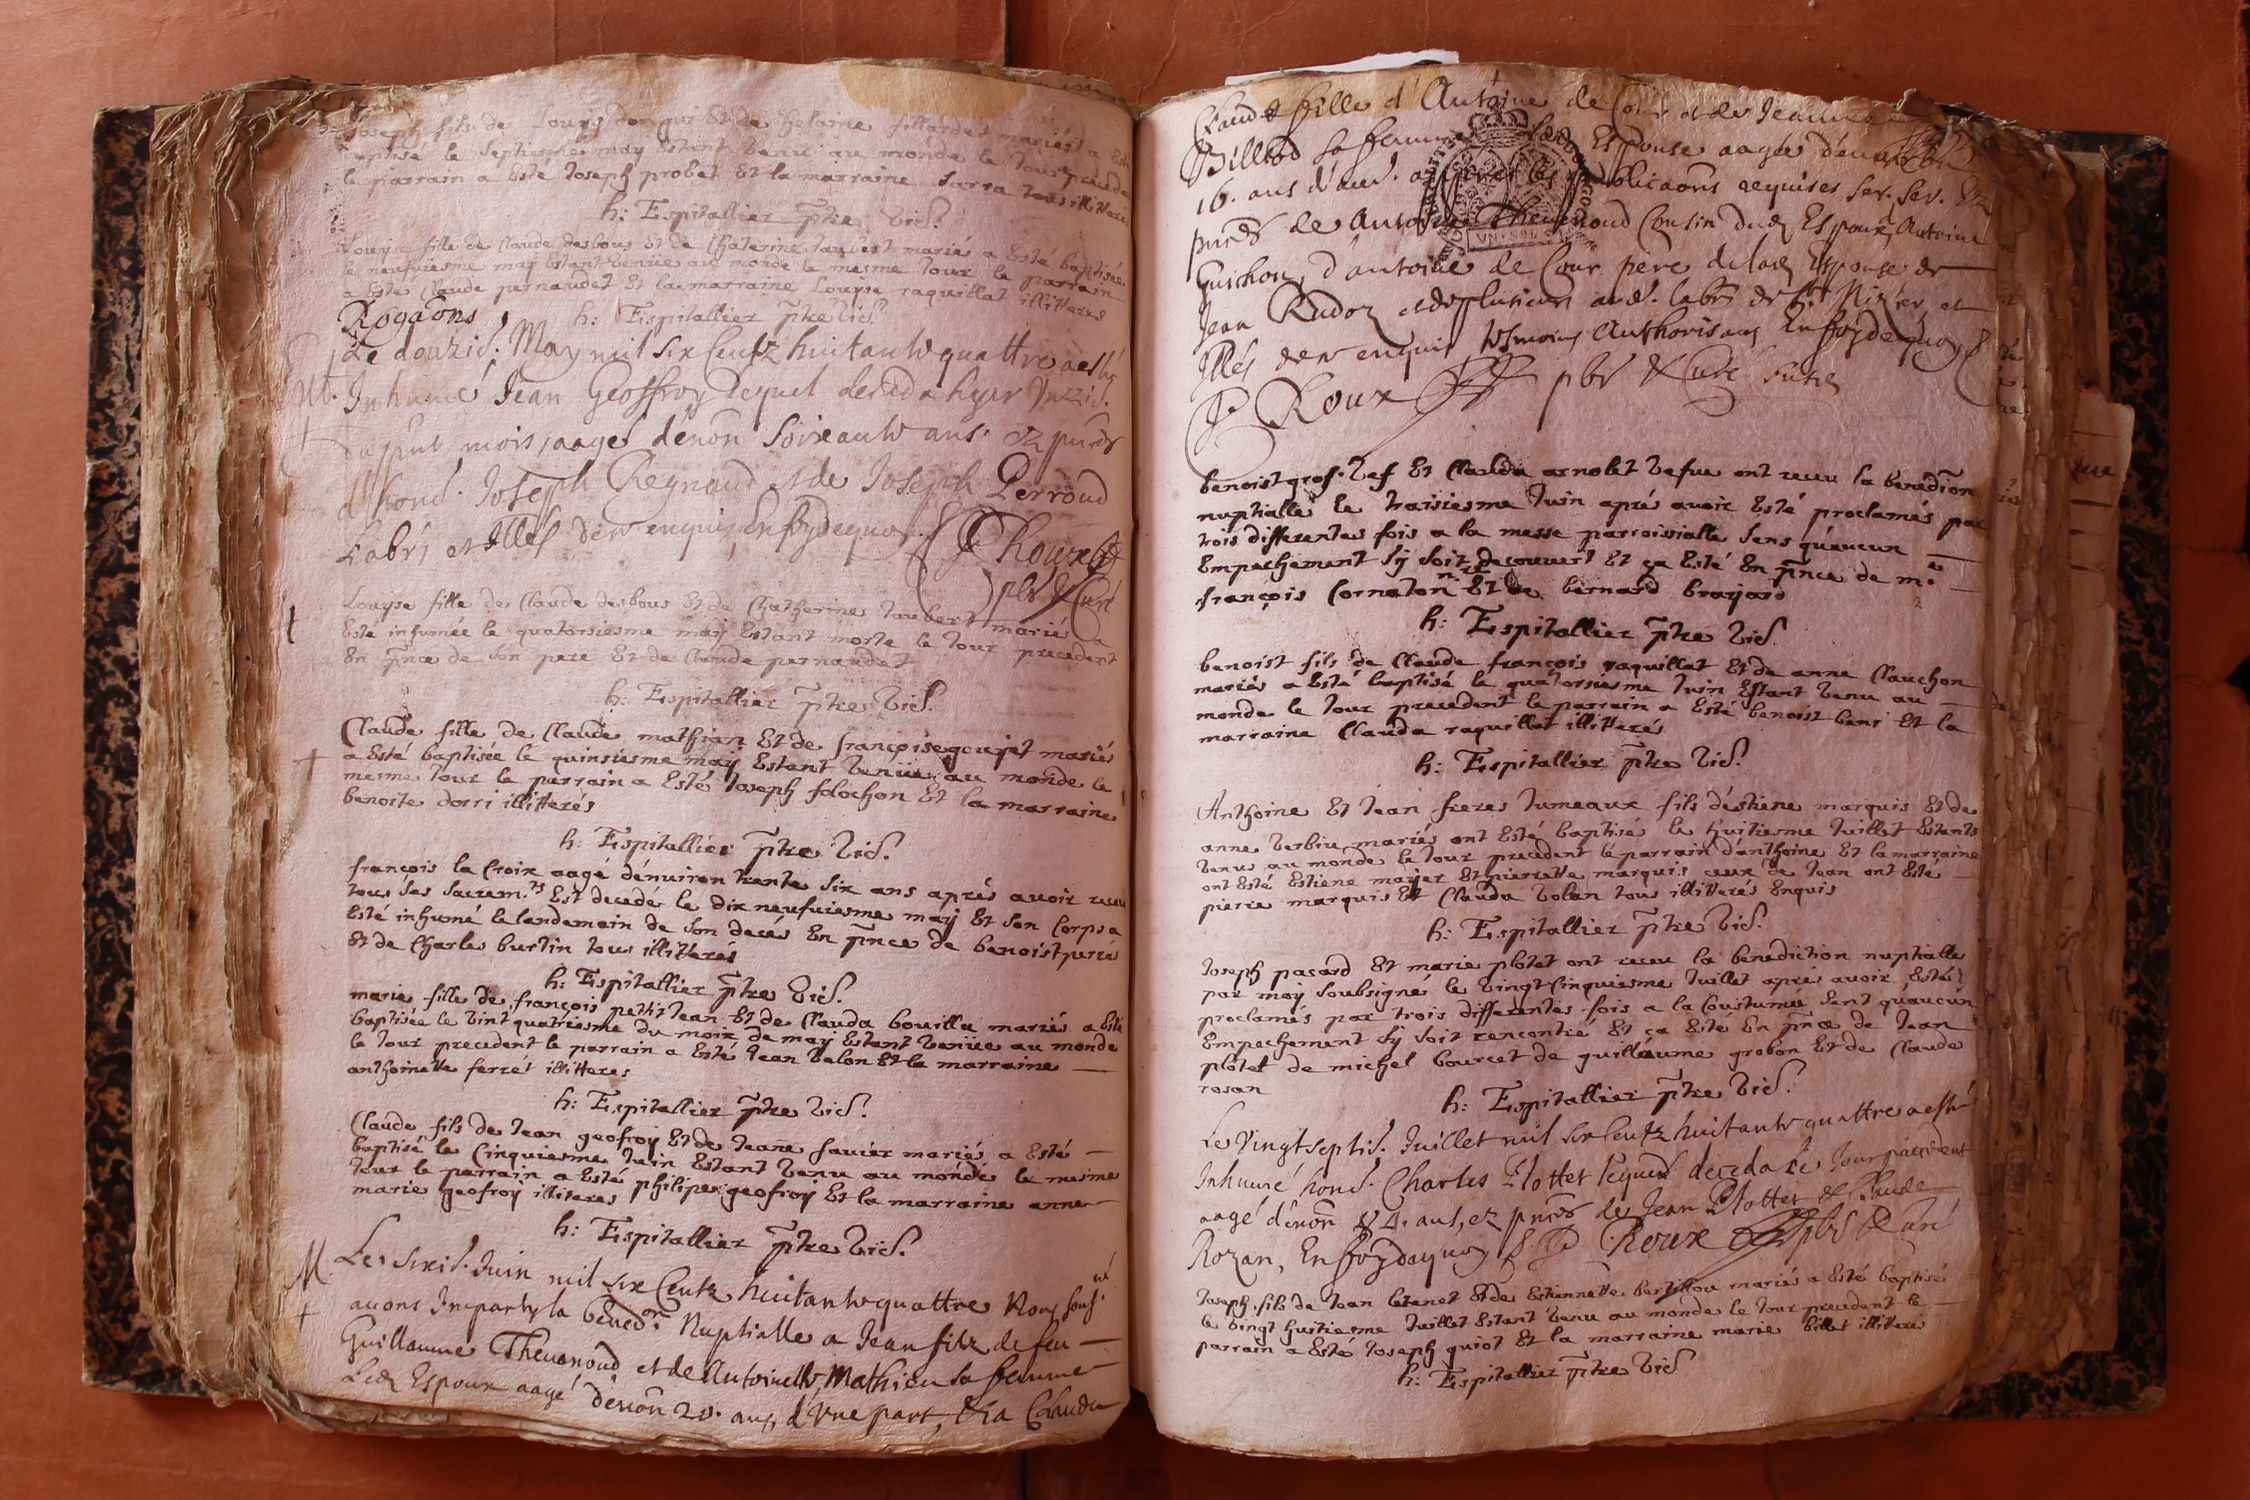 Joseph fils de Louys et de helaine fillardet mariés a Esté
baptisé le septiesme may Estant venu au monde le Jour precedent
le parrain a esté Joseph probet Et la marraine Sarra tous illitteres
h: Espitallier ptre vic.
Louyse fille de Claude desbous Et de Chaterine Jaubert mariés a Esté baptisée
le neufuiesme may Estant venue au monde le mesme Jour le parrain
a Esté Claude pernaudet Et la marraine Louyse raquillat illitteres
h: Espitallier ptre vic.
Rogaons
Le douzie. May mil six Centz huitante quattre a esté
Inhumé Jean Geoffroy lequel deceda hyer Unzie.
du pnt mois, aagé d'enon soixante ans. Ez pnces
d'hond. Joseph Reynaud et de Joseph Perroud
Labrs et Illes de ce enquis, En foy dequoy
Roux
pbr & Curé
Louyse fille de Claude desbous Et de Chatherine Jaubert mariés a
Esté inhumée le quatorsiesme may Estant morte le Jour precedent
En pnce de son pere Et de Claude pernaudet
h: Espitallier ptre vic.
Claude fille de Claude mathian Et de françoise goujet mariés
a Esté baptisée le quinsiesme may Estant venüe au monde le
mesme Jour le parrain a Esté Joseph folochon Et la marraine
benoite dorri illitterés
h: Espitallier ptre vic.
françois la Croix aagé d'enuiron trente six ans aprés avoir receu
tous ses sacrem.ts Est decedé le dix neufuiesme may Et son Corps a
Esté inhumé le lendemain de son decés En pnce de benoist
Et de Charles burtin tous illitterés
h: Espitallier ptre vic.
marie fille de françois petit Jean Et de Clauda bouillu mariés a Esté
baptisée le vint quatriesme du mois de may Estant venüe au monde
le Jour precedent le parrain a Esté Jean valon Et la marraine
anthoinette ferret illitteres
h: Espitallier ptre vic.
Claude fils de Jean geofroy Et de Jeane favier mariés a Esté
baptisé le Cinquiesme Juin Estant venu au monde le mesme
Jour le parrain a Esté philipe geofroy Et la marraine anne
marie geofroy illiteres
h: Espitallier ptre vic.
Le sixie. Juin mil six Centz huitante quattre Nous sousné
auons Imparty la bened.on Nuptialle a Jean filz de feu
Guillaume Theuenoud et de Antoinette Mathieu sa femme
Led Espoux aagé d'enon 20. ans, d'Une part, & a Clauda
Claude fille d'Antoine de Cour et de Jeanne
Billiod sa femme Espouse aagée d'enuiron
16. ans d'aud. apres les publicaons requises
pnces de Antoine Theuenoud Cousin dud Espoux, Antoine
Guichon, d'antoine de Cour père de lad Espouse de
Jean Rudoz et de plusieurs aud. labrs de st Nizier, et
Illés de ce enquis tesmoins Authorisans En foy dequoy
Roux pbr & Curé susd
benoist gros. vef Et Clauda arnolet vefue ont receu la benedion
nuptialle le traisiesme Juin aprés avoir Esté proclamés par
trois differentes fois a la messe parroissialle sens qu'aucun
Empechement s'y soit decouuert Et ça Esté En pnce de m.e
françois Cornaton Et de bernard brayard
h: Espitallier ptre vic.
benoist fils de Claude françois raquillat Et de anne Clauchon
mariés a Esté baptisé le quatorsiesme Juin Estant venu au
monde le Jour precedent le parrain a Esté benoist Et la
marraine Clauda raquillat illitterés
h: Espitallier ptre vic.
Anthoine Et Jean freres Jumeaux fils d'estiene marquis Et de
anne verbiu mariés ont Esté baptisé le huitiesme Juillet Estants
venus au monde le Jour precedent le parrain d'anthoine Et la marraine
ont Esté Estiene mayer Et pierrette marquis ceux de Jean ont Esté
pierre marquis Et Clauda volan tous illitterés Enquis
h: Espitallier ptre vic.
Joseph pacard Et marie plotet ont receu la benediction nuptialle
par moy soubsigné le vingt Cinquiesme Juillet aprés avoir Esté
proclamés par trois differentes fois a la Coustume sent qu'aucun
Empechement s'y soit rencontré Et ça Esté En pnce de Jean
plotet de michel bourcet de guilleaume grobon Et de Claude
rosan
h: Espitallier ptre vic.
Le Vingt septie. Juillet mil six Centz huitante quattre a esté
Inhumé hond. Charles Plottet lequel deceda le Jour precedent
aagé d'enon 84. ans, ez pnces de Jean Plottet & Claude
Rozan, En foy dequoy Roux pbr & Curé
Joseph fils de Jean Et de Estiennette bertillou mariés a Esté baptisé
le vingt huitiesme Juillet Estant venu au monde le Jour precedent le
parrain a Esté Joseph guiot Et la marraine marie billet illitteres
h: Espitallier ptre vic